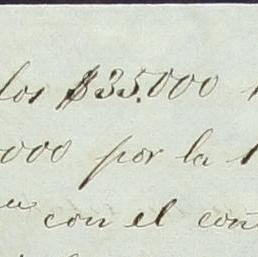 los $35.000
000 por la
con el con